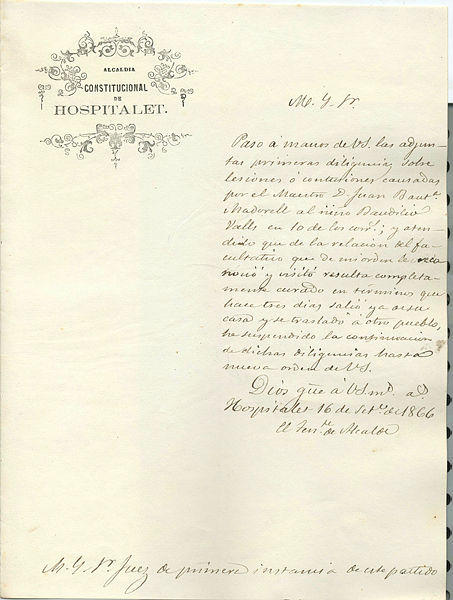 ALCALDIA
CONSTITUCIONAL
DE
HOSPITALET.
M. Y. Sr.
Paso á manos de VS. las adjun-
tas primeras diligencias sobre
lesiones ó contusiones causadas
por el Maestro D. Juan Baut.ª
Madorell al niño Baudilio
Valls en 10 de los corr.s; y aten-
dido que de la relacion del fa-
cultativo que de mi orden le reco
noció y visitó resulta completa-
mente curado en términos que
hace tres dias salió ya de su
casa y se trasladó á otro pueblo,
he suspendido la continuacion
de dichas diligencias hasta
nueva orden de V.S.
Dios gũe á VS. m.s a.s
Hospitalet 16 de Set.e de 1866
El Ten.te de Alcalde
M. Y. Sr. Juez de primera instancia de este partido